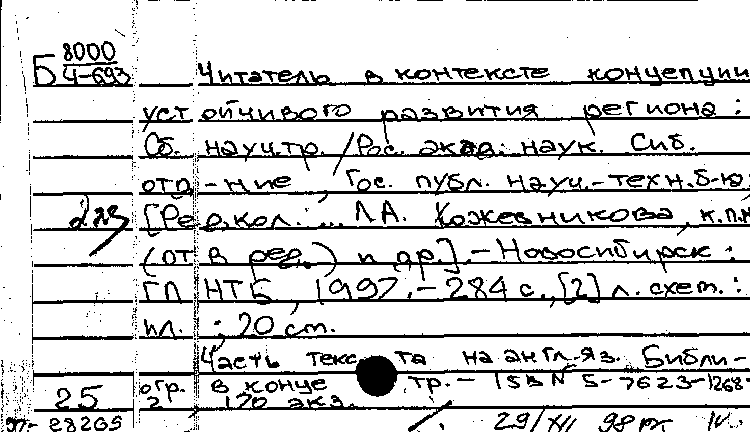 Б 8000
Ч-693
Читатель в контексте концепции
устойчивого развития региона :
Сб. науч.тр. / Рос. акад. наук. Сиб.
отд-ние, Гос. публ. науч.-техн. б-ка;
[Редкол.: ... Л.А. Кожевникова, к.п.н
(отв ред.) и др.]. - Новосибирск :
ГПНТБ, 1997. - 284 с., [2] л. схем. :
ил. ; 20 см.
Часть текста на англ. яз. Библи-
огр. в конце тр. - ISBN 5-7623-1268-
2 170 экз.
2 яз
25
97- 28205 29/XII 98